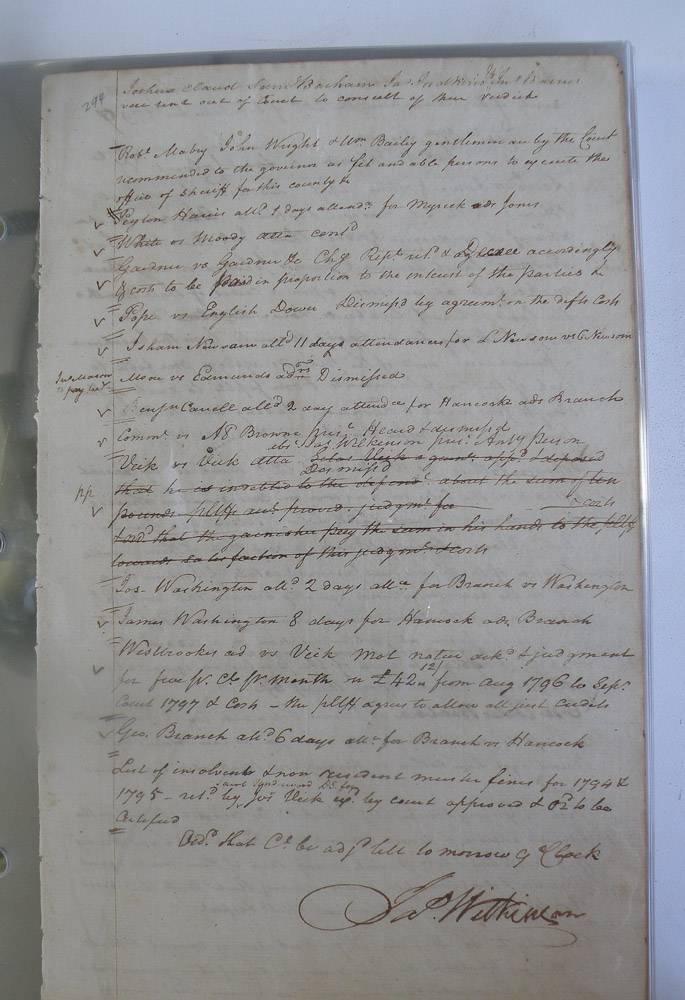 294
Joshua Claud Saml Barham Jas Jno Barnes
were sent out of Court to consult of their verdict
Robt Mabry John Wright & Wm Baily gentlemen are by the Court
recommended to the governor as fit and able persons to execute the
office of Sheriff for this county &
Peyton Harris alld 9 days attendce for Myrick ads Jones
White vs Moody atta contd
Gardner vs Gardner &c Chy Rept retd & decree accordingly
& costs to be paid in proportion to the interest of the parties
Pope vs English Dower Dismissd by agreemt on the defts costs
Isham Newsom alld 11 days attendances for L Newsom vs G Newsom
Jno Mason to pay tax
Moore vs Edmunds adrs Dismissed
Benjn Carrell alld 2 day attendce for Hancocke ads Branch
Comonw vs AB Browne prest Heard & dismissd
vs Jas Wilkinson prest
Vick vs Vick Atta Silas Vick a garn. appd & deposed
Dismissd
that he is indebted to the defendt about the sum of ten
pp
pounds pltff acct proved. judgmt for costs
& ord that the garnishee pay the sum in his hands to the pltff
towards satisfaction of this judgmt & costs
Jos Washington alld 2 days allce for Branch vs Washington
James Washington 8 days for Hancock ads Branch
Westbrookes ad vs Vick Mot notice ackd & judgment
for five pr Ct pr month on £42 12/ from Aug 1796 to Sepr
Court 1797 & costs - the pltff agrees to allow all just credits
Geo. Branch alld 6 days allce for Branch vs Hancock
List of insolvents & non resident muster fines for 1794 &
1795 - retd by Jos Vick by court approved & Od to be
Certified
Ordd that Ct be adjd till to morrow 9 oClock
Jas Wilkinson